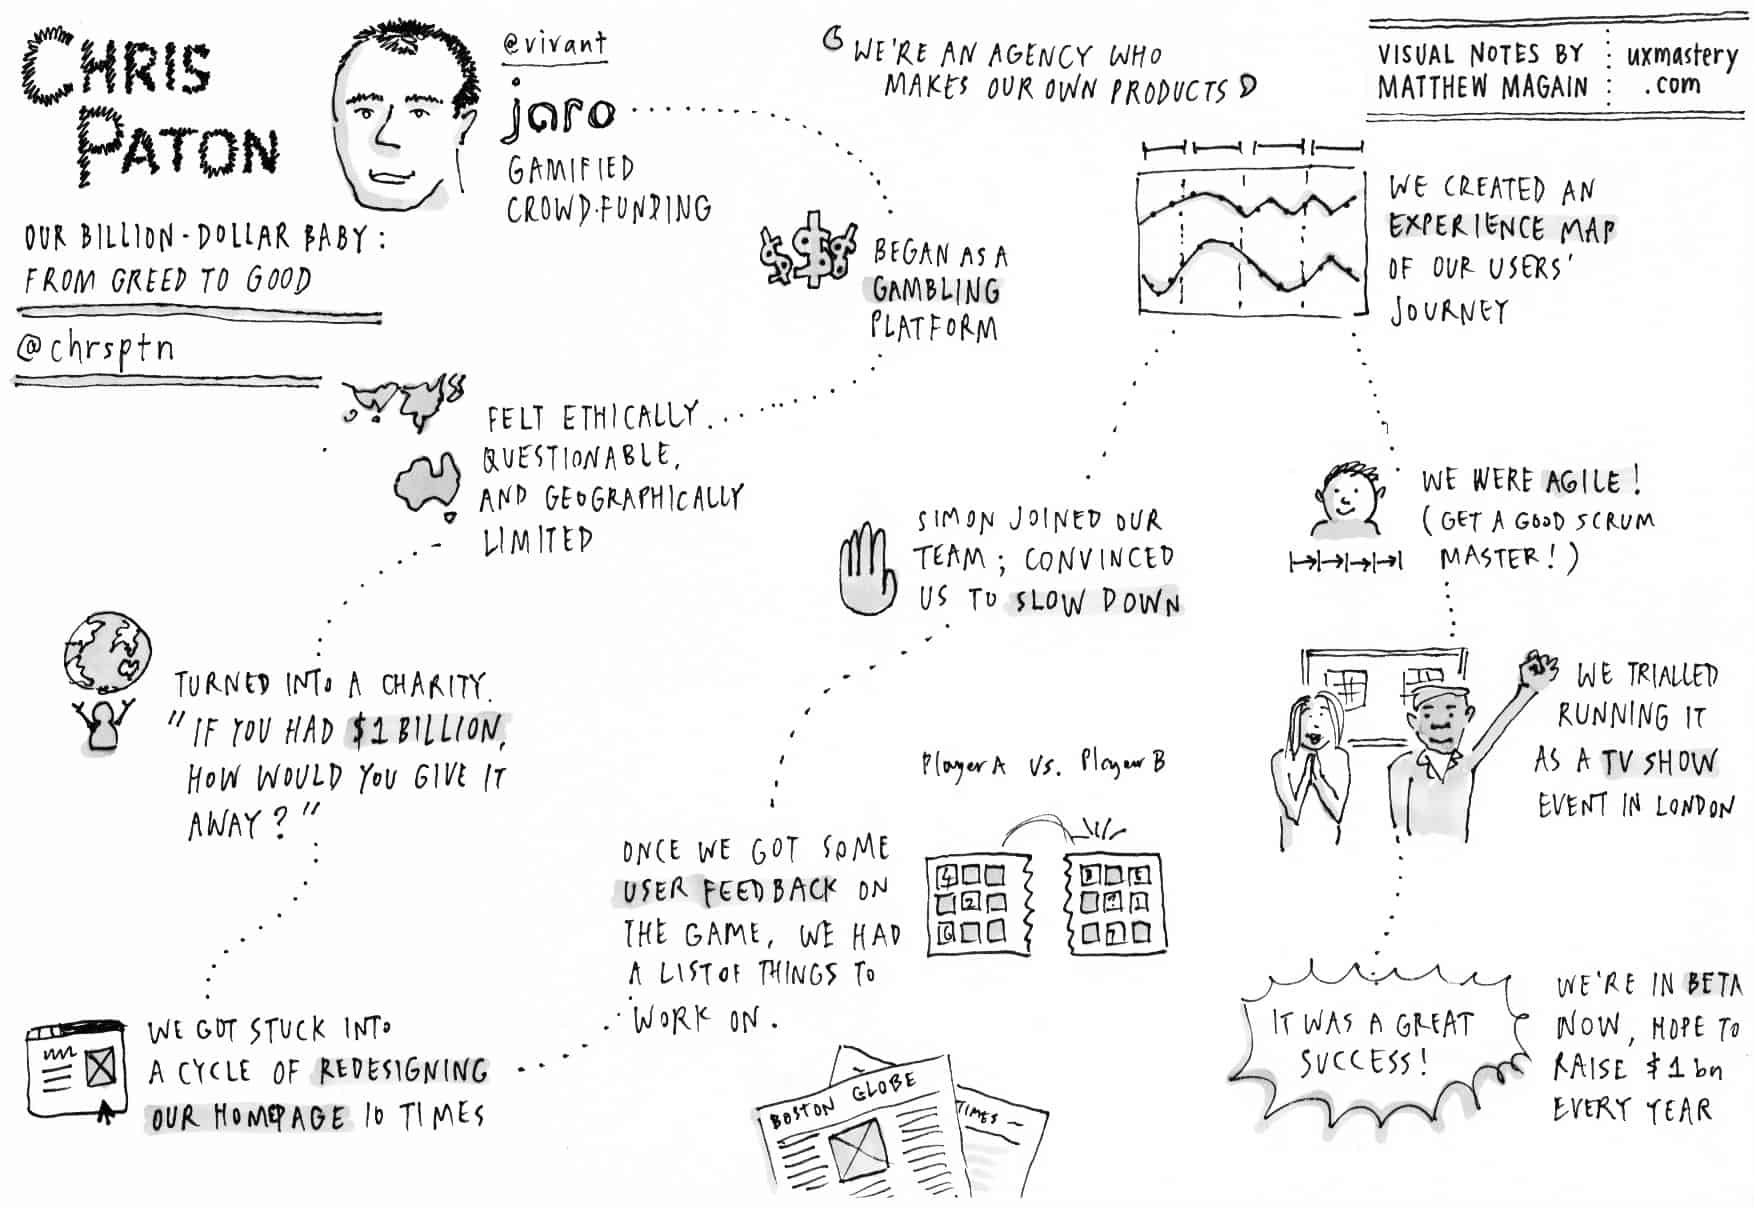 CHRIS
PATON
OUR BILLION-DOLLAR BABY:
FROM GREED TO GOOD
@chrsptn
@vivant
jaro
GAMIFIED
CROWD·FUNDING
WE'RE AN AGENCY WHO
MAKES OUR OWN PRODUCTS
VISUAL NOTES BY
MATTHEW MAGAIN
uxmastery
.com
$$$
BEGAN AS A
GAMBLING
PLATFORM
FELT ETHICALLY
QUESTIONABLE,
AND GEOGRAPHICALLY
LIMITED
TURNED INTO A CHARITY.
"IF YOU HAD $1 BILLION,
HOW WOULD YOU GIVE IT
AWAY?"
WE GOT STUCK INTO
A CYCLE OF REDESIGNING
OUR HOMEPAGE 10 TIMES
ONCE WE GOT SOME
USER FEEDBACK ON
THE GAME, WE HAD
A LIST OF THINGS TO
WORK ON.
SIMON JOINED OUR
TEAM; CONVINCED
US TO SLOW DOWN
WE CREATED AN
EXPERIENCE MAP
OF OUR USERS'
JOURNEY
WE WERE AGILE!
(GET A GOOD SCRUM
MASTER!)
WE TRIALLED
RUNNING IT
AS A TV SHOW
EVENT IN LONDON
IT WAS A GREAT
SUCCESS!
WE'RE IN BETA
NOW, HOPE TO
RAISE $1bn
EVERY YEAR
Player A vs. Player B
2
7
BOSTON GLOBE
TIMES